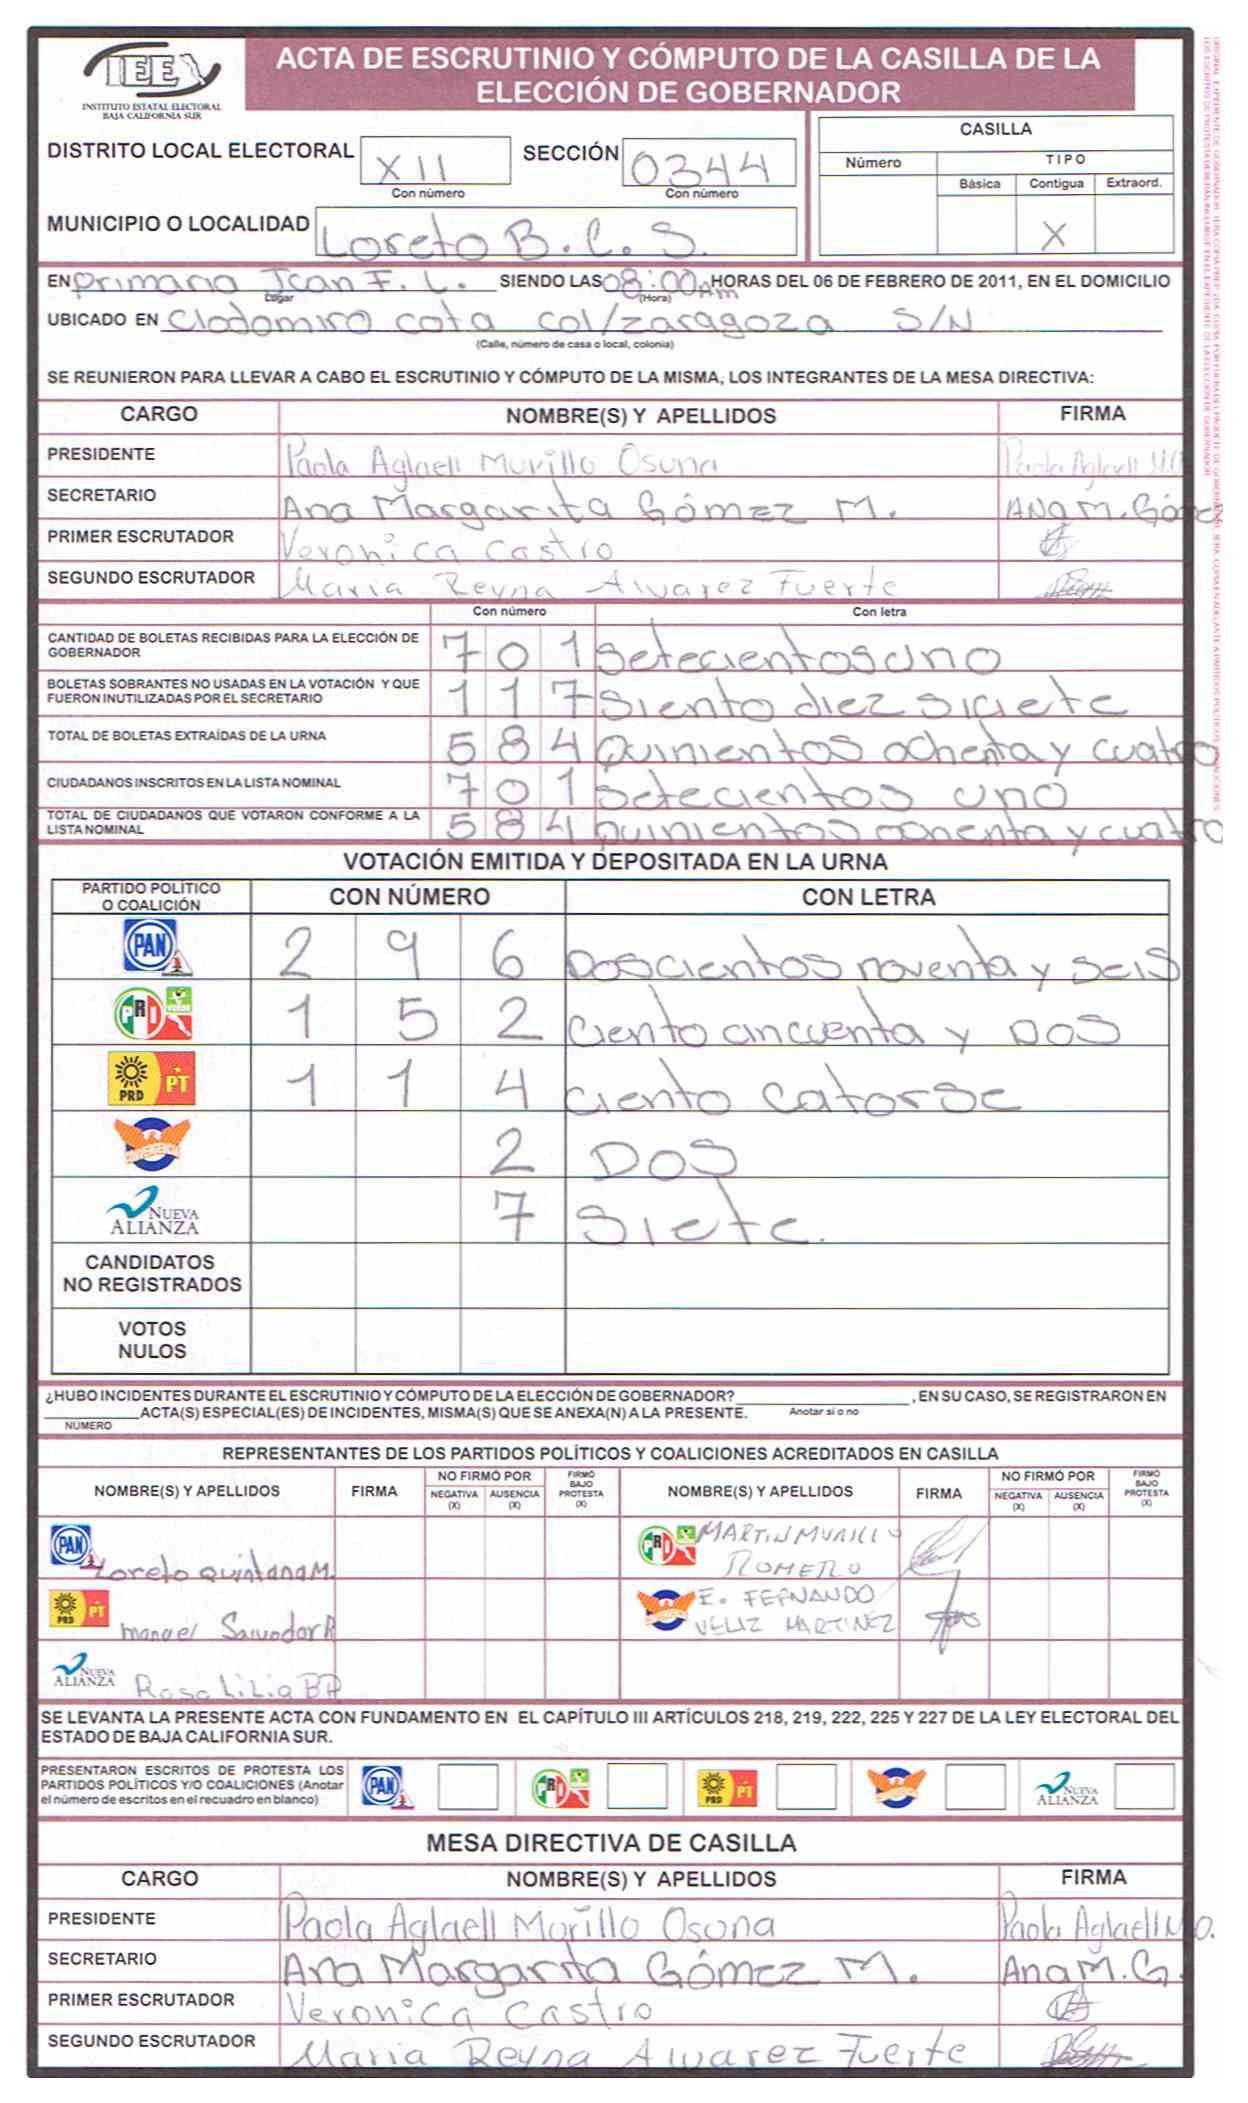 IEE
INSTITUTO ESTATAL ELECTORAL
BAJA CALIFORNIA SUR
ACTA DE ESCRUTINIO Y CÓMPUTO DE LA CASILLA DE LA
ELECCIÓN DE GOBERNADOR
DISTRITO LOCAL ELECTORAL XII SECCIÓN 0344
Con número Con número
MUNICIPIO O LOCALIDAD Loreto B.C.S.
CASILLA
Número TIPO
Básica Contigua Extraord.
X
EN primaria Jcan F. L. SIENDO LAS 08:00am HORAS DEL 06 DE FEBRERO DE 2011, EN EL DOMICILIO
Lugar (Hora)
UBICADO EN Clodomiro cota col/zaragoza S/N
(Calle, número de casa o local, colonia)
SE REUNIERON PARA LLEVAR A CABO EL ESCRUTINIO Y CÓMPUTO DE LA MISMA, LOS INTEGRANTES DE LA MESA DIRECTIVA:
CARGO NOMBRE(S) Y APELLIDOS FIRMA
PRESIDENTE Paola Aglaell Murillo Osuna Paola Aglaell M.O.
SECRETARIO Ana Margarita Gómez M. ANa M. Góme
PRIMER ESCRUTADOR Veronica Castro
SEGUNDO ESCRUTADOR Maria Reyna Alvarez Fuerte
Con número Con letra
CANTIDAD DE BOLETAS RECIBIDAS PARA LA ELECCIÓN DE
GOBERNADOR 7 0 1 Setecientos uno
BOLETAS SOBRANTES NO USADAS EN LA VOTACIÓN Y QUE
FUERON INUTILIZADAS POR EL SECRETARIO 1 1 7 Siento diez siciete
TOTAL DE BOLETAS EXTRAÍDAS DE LA URNA 5 8 4 Quinientos ochenta y cuatro
CIUDADANOS INSCRITOS EN LA LISTA NOMINAL 7 0 1 Setecientos uno
TOTAL DE CIUDADANOS QUE VOTARON CONFORME A LA
LISTA NOMINAL 5 8 4 quinientos ochenta y cuatro
VOTACIÓN EMITIDA Y DEPOSITADA EN LA URNA
PARTIDO POLÍTICO
O COALICIÓN CON NÚMERO CON LETRA
PAN 2 9 6 Doscientos noventa y seis
PRI VERDE 1 5 2 Ciento cincuenta y Dos
PRD PT 1 1 4 Ciento Catorse
CONVERGENCIA 2 Dos
NUEVA ALIANZA 7 Siete.
CANDIDATOS
NO REGISTRADOS
VOTOS
NULOS
¿HUBO INCIDENTES DURANTE EL ESCRUTINIO Y CÓMPUTO DE LA ELECCIÓN DE GOBERNADOR? , EN SU CASO, SE REGISTRARON EN
ACTA(S) ESPECIAL(ES) DE INCIDENTES, MISMA(S) QUE SE ANEXA(N) A LA PRESENTE. Anotar si o no
NÚMERO
REPRESENTANTES DE LOS PARTIDOS POLÍTICOS Y COALICIONES ACREDITADOS EN CASILLA
NOMBRE(S) Y APELLIDOS FIRMA NO FIRMÓ POR NEGATIVA (X) AUSENCIA (X) FIRMÓ BAJO PROTESTA (X) NOMBRE(S) Y APELLIDOS FIRMA NO FIRMÓ POR NEGATIVA (X) AUSENCIA (X) FIRMÓ BAJO PROTESTA (X)
PAN Loreto Quintana M. PRI MARTIN MURILLO
ROMERO
PRD PT manuel Salvador R E. FERNANDO
VELIZ MARTINEZ
NUEVA ALIANZA Rosa Lilia BA
SE LEVANTA LA PRESENTE ACTA CON FUNDAMENTO EN EL CAPÍTULO III ARTÍCULOS 218, 219, 222, 225 Y 227 DE LA LEY ELECTORAL DEL
ESTADO DE BAJA CALIFORNIA SUR.
PRESENTARON ESCRITOS DE PROTESTA LOS
PARTIDOS POLÍTICOS Y/O COALICIONES (Anotar
el número de escritos en el recuadro en blanco)
PAN PRI PRD PT NUEVA ALIANZA
MESA DIRECTIVA DE CASILLA
CARGO NOMBRE(S) Y APELLIDOS FIRMA
PRESIDENTE Paola Aglaell Murillo Osuna Paola Aglaell M.O.
SECRETARIO Ana Margarita Gómez M. Ana M. G.
PRIMER ESCRUTADOR Veronica Castro
SEGUNDO ESCRUTADOR Maria Reyna Alvarez Fuerte